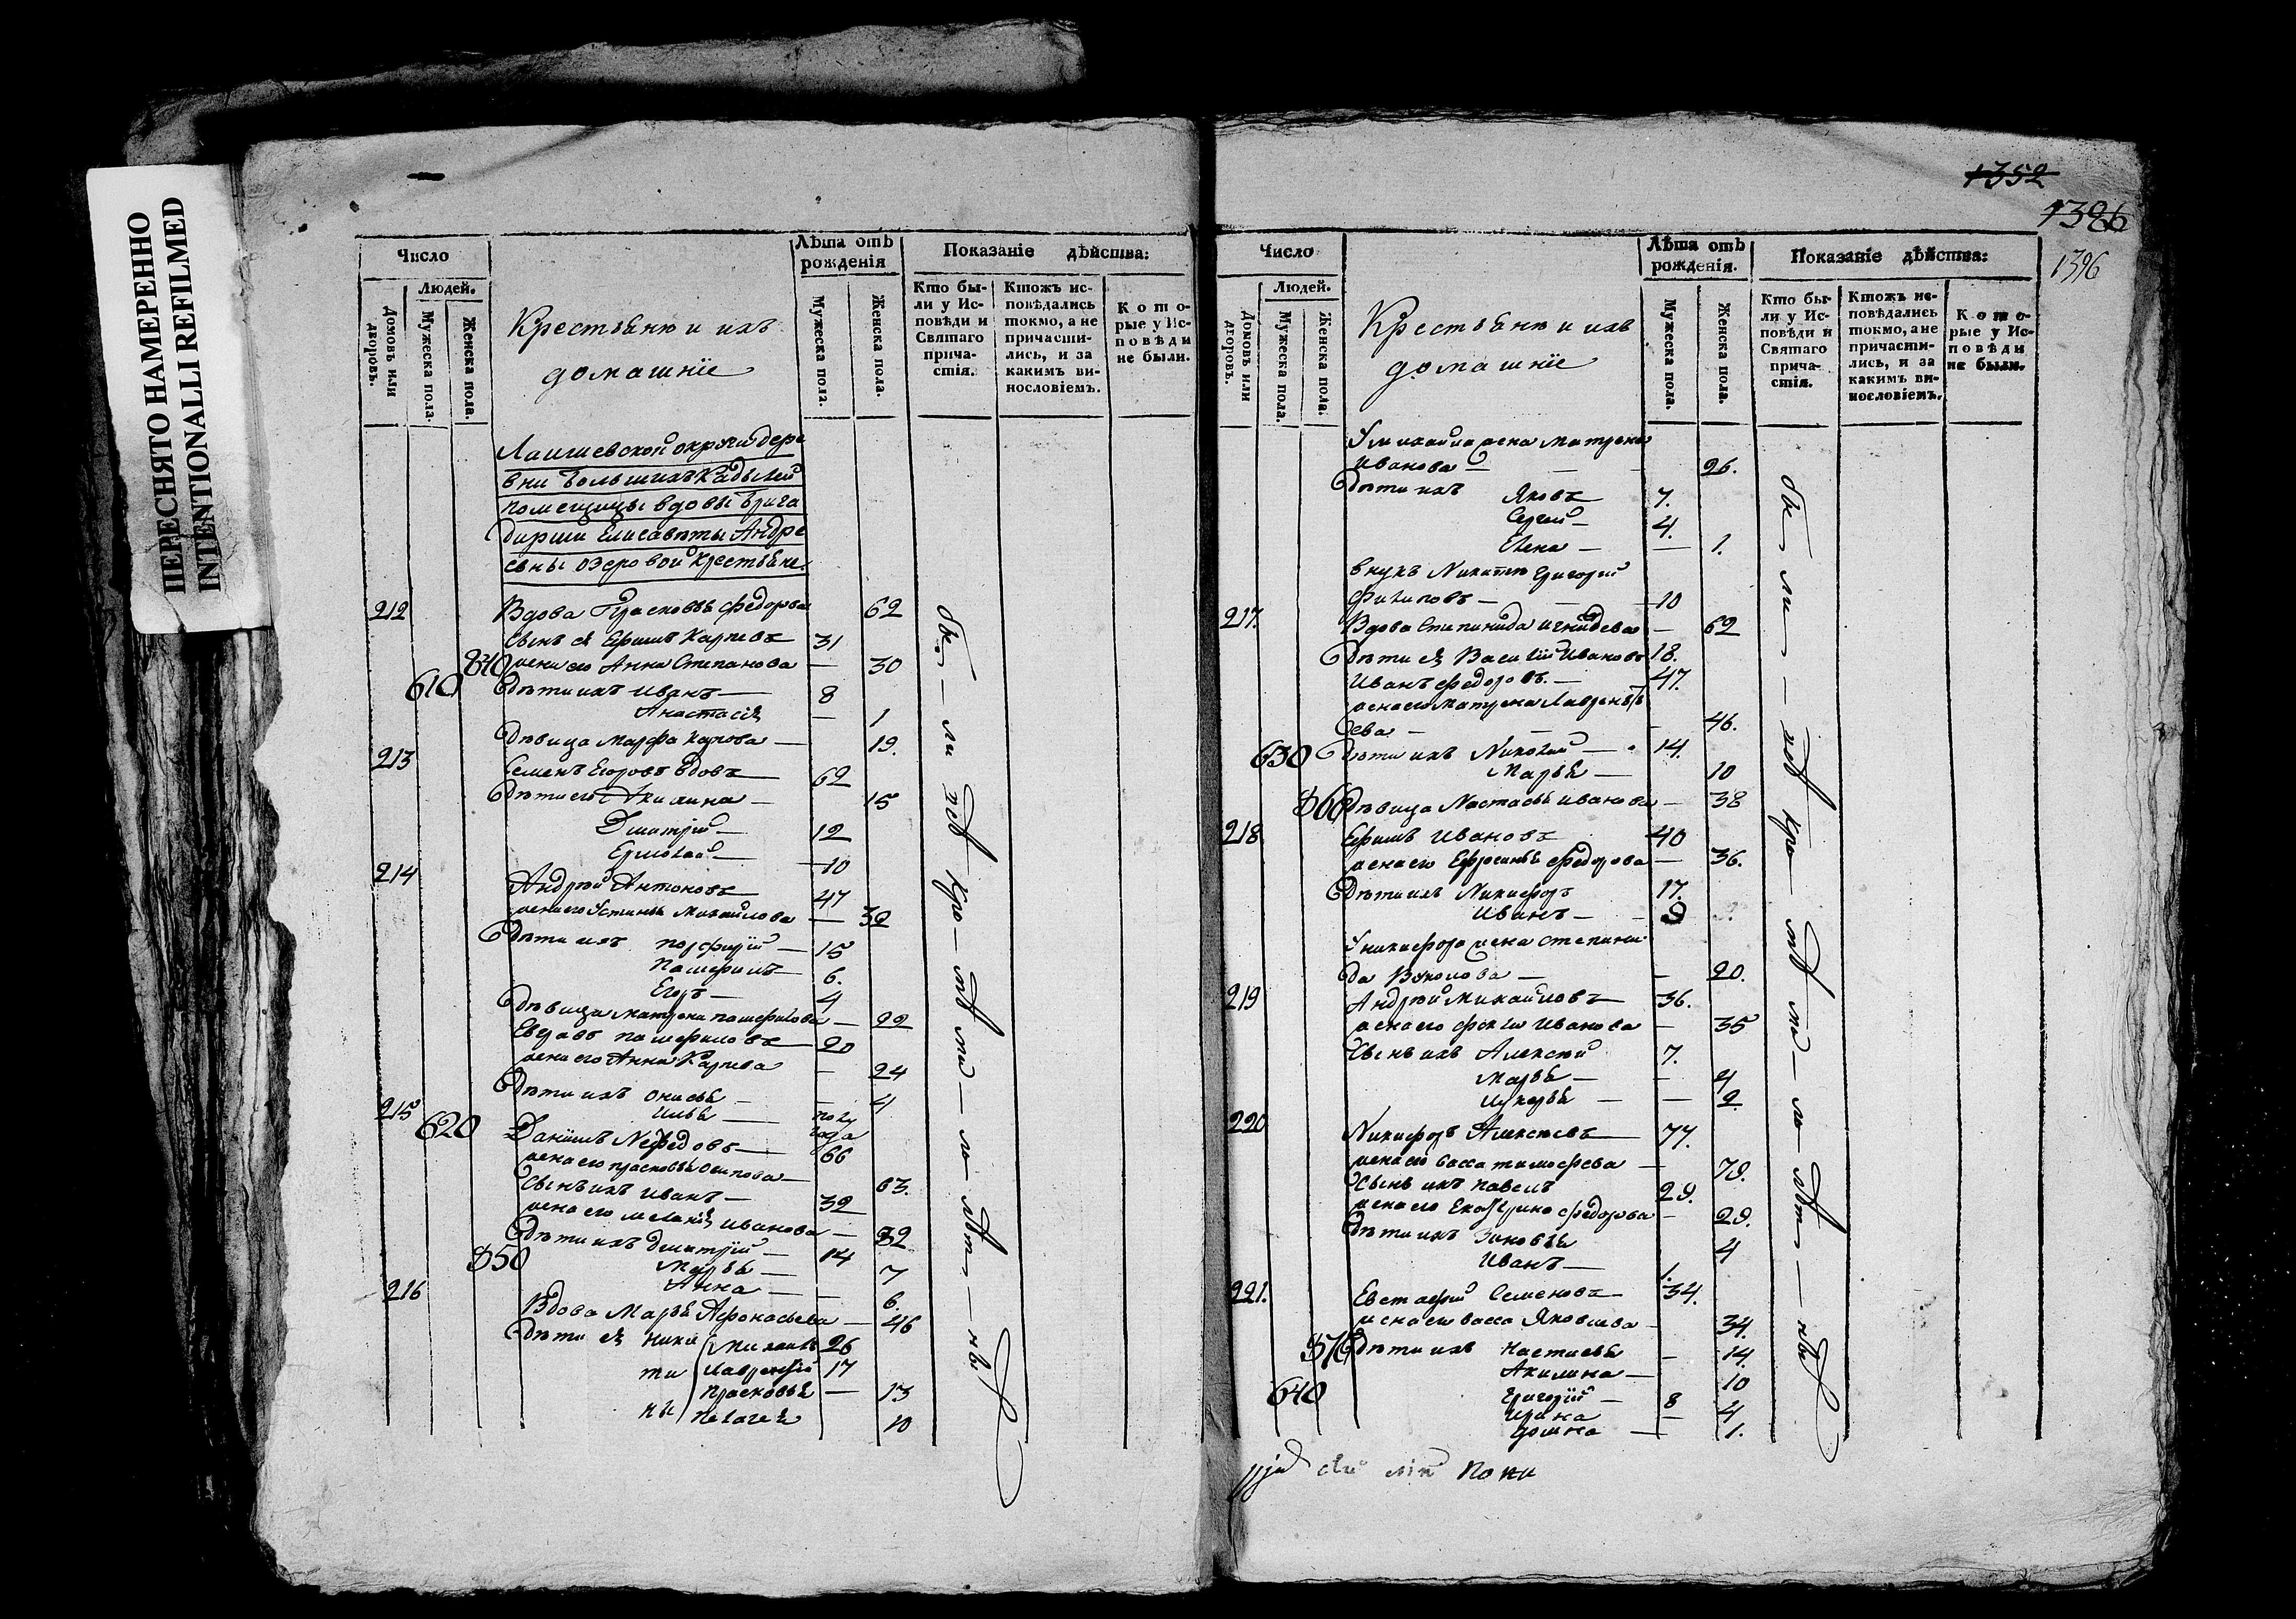 ПЕРЕСНЯТО НАМЕРЕННО
INTENTIONALLI REFILMED
Число
Людей.
Домовъ или дворовъ.
Мужеска пола.
Женска пола.
Крестьяне и ихъ
домашніе
Лѣта отъ рожденія
Мужеска пола.
Женска пола.
Показаніе дѣйства:
Кто были у Исповѣди и Святаго причастія.
Ктожъ исповѣдались токмо, а не причастились, и за какимъ винословіемъ.
Которые у Исповѣди не были.
Лаишевской округи дере
вни Большихъ Кадылей
помещицы вдовы Брига
дирши Елисаветы Андре
евны Озеровой крестьяне.
212 Вдова Прасковья Федорова 62
Сынъ ея Ефимъ Карпевъ 31
840 жена его Анна Степанова — 30
610 Дѣти ихъ Иванъ — 8
Анастасія — 1
Дѣвица Марфа Карпова — 19.
213 Семенъ Егоровъ вдовъ 62
Дѣти его Акилина — 15
Дмитрій — 12
Ермолай — 10
214 Андрей Антоновъ 47
жена его Устинья Михайлова — 39
Дѣти ихъ Порфирій — 15
Памфилъ 6.
Егоръ — 4
Дѣвица Матрена Памфилова — 22
Памфиловъ 20
жена его Анна Карпева — 24
Дѣти ихъ Онисья — 4
Илья — полу
года
215 620 Данилъ Нефедовъ — 66
жена его Прасковья Осипова — 63.
Сынъ ихъ Иванъ — 39
жена его Меланія Иванова — 32
Дѣти ихъ Дмитрій — 14
850 Марья — 7
Анна — 6.
216 Вдова Марья Афонасьева — 46
Дѣти ея Ники Михаилъ 26
ти Лаврентій 17
Прасковья — 13
ны Пелагея 10
бы — ли
1352
1326
1396
Число
Людей.
Домовъ или дворовъ.
Мужеска пола.
Женска пола.
Крестьяне и ихъ
домашніе
Лѣта отъ рожденія.
Мужеска пола.
Женска пола.
Показаніе дѣйства:
Кто были у Исповѣди и Святаго причастія.
Ктожъ исповѣдались токмо, а не причастились, и за какимъ винословіемъ.
Которые у Исповѣди не были.
У Михайла жена Матрена
Иванова — — 26.
Дѣти ихъ Яковъ 7.
Сергей — 4.
Елена — — 1.
внукъ Никиты Григорій
Филиповъ — — 10
217. Вдова Степанида — 62
Дѣти ея Василій Ивановъ 18.
Иванъ Федоровъ. — 47.
жена его Матрена Лаврентье
ева — — 46.
630 Дѣти ихъ Николай — 14.
Марья — 10
860 Дѣвица Настасья Иванова — 38
218 Ефимъ Ивановъ 40
жена его Ефросинья Федорова — 36.
Дѣти ихъ Никифоръ 17.
Иванъ — 9
У Никифора жена Степани
да Вуколова — — 20.
219 Андрей Михайловъ 36.
жена его Фекла Иванова — 35
Сынъ ихъ Алексей 7.
Марья — — 4
Лукерья — — 2.
220 Никифоръ Алексѣевъ 77.
жена его Васса Тимофеева — 78.
Сынъ ихъ Павелъ 29.
жена его Екатерина Федорова — 29.
Дѣти ихъ Зиновья 4
Иванъ — 1.
221. Евстафий Семеновъ 34.
жена его Васса Яковлева — 34.
870 Дѣти ихъ Настасья — 14.
Акилина — 10
640 Григорій — 8
Ирина — 4
Домна — 1.
бы — ли